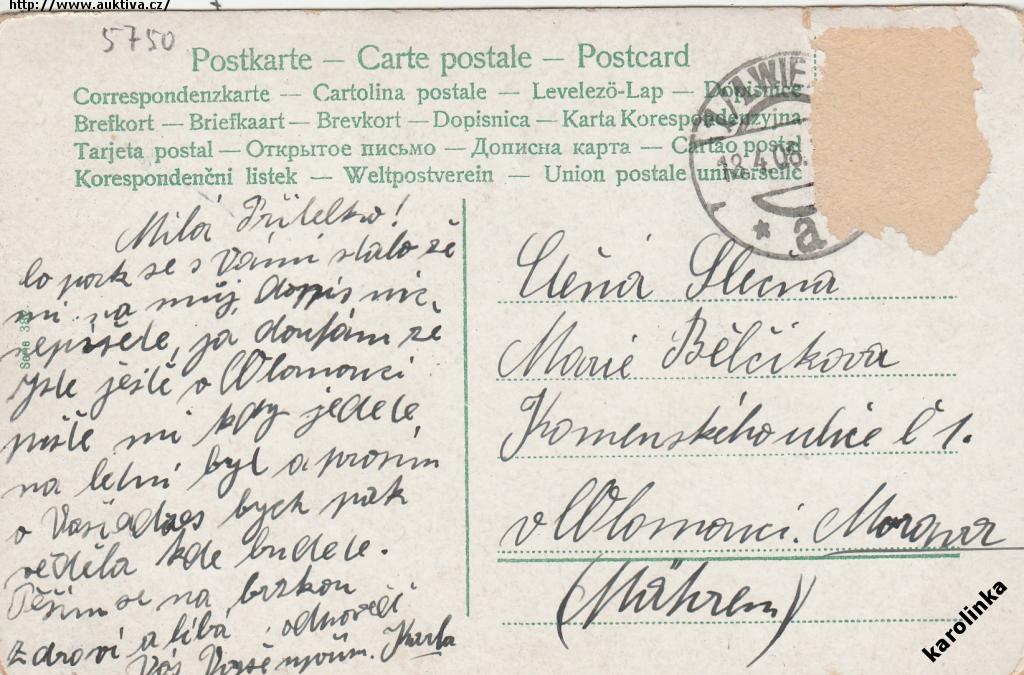 http://www.auktiva.cz/
5750
Postkarte — Carte postale — Postcard
Correspondenzkarte — Cartolina postale — Levelezö-Lap — Dopisnice
Brefkort — Briefkaart — Brevkort — Dopisnica — Karta Korespondenzyjna
Tarjeta postal — Открытое письмо — Дописна карта — Cartão postal
Korespondenčni listek — Weltpostverein — Union postale universelle
AWIE
13.4.08.
* a
Milá Přítelko!
to pak se s Vámi stalo že
mi na můj dopis nic
nepíšete, ja doufám že
jste ještě v Olomouci
pište mi kdy jedete
na letní byt a prosím
o Vaši adres bych pak
věděla kde budete.
Těším se na brzkou
odpověď
Zdraví a líbá
Vás Karla
Serie 38
Ctěná Slečna
Marie Bělčikova
Komenského ulice č 1.
v Olomouci. Morava
(Mähren)
karolinka